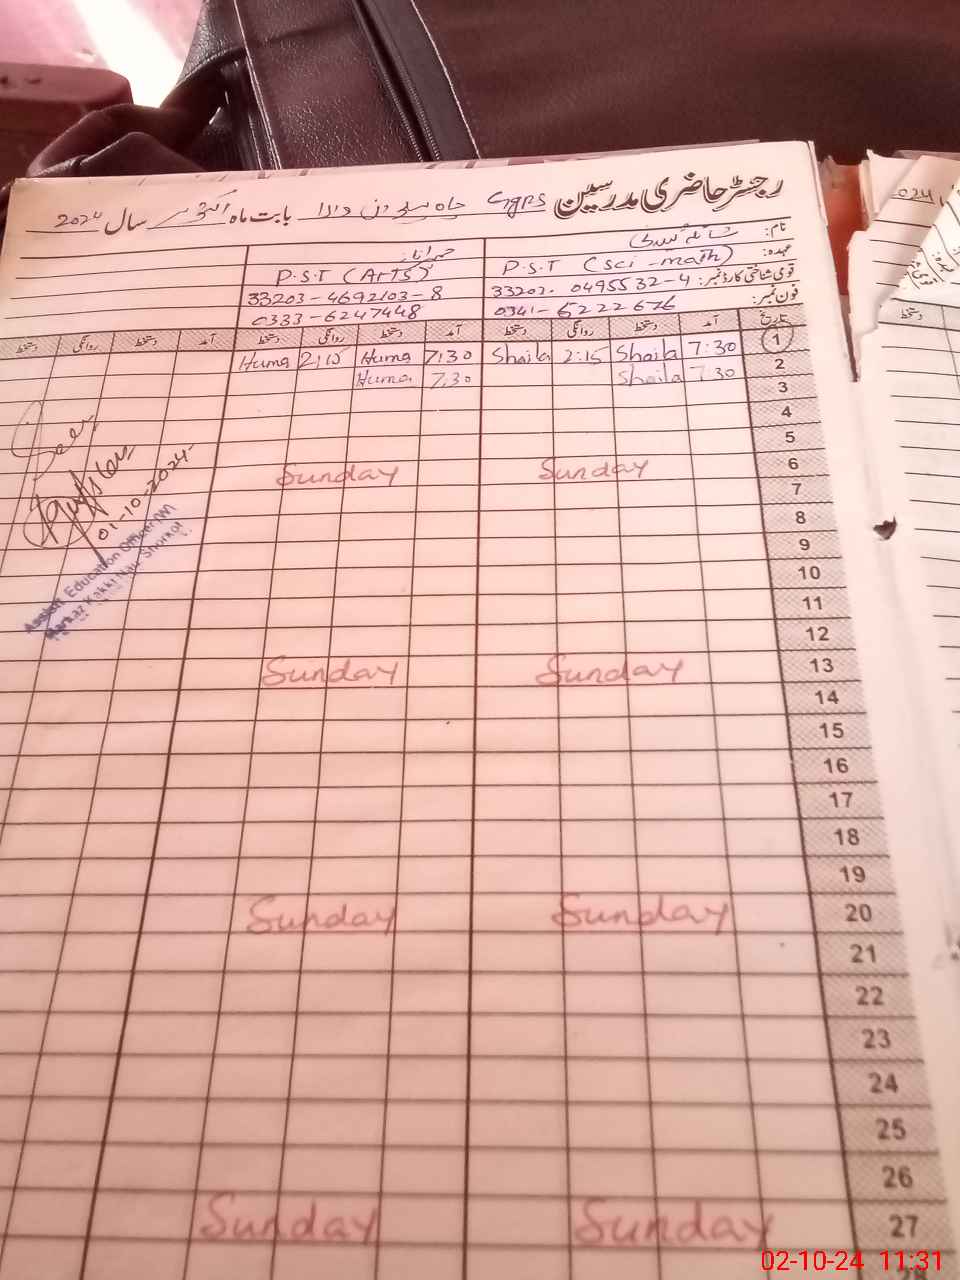 رجسٹر حاضری مدرسین GGPS چاہ والا بابت ماہ اکتوبر سال 2024
نام: شائلہ
حمرانا
عہدہ: P.S.T (Sci-math)
P.S.T (Arts)
قومی شناختی کارڈ نمبر: 33202-0495532-4
33203-4692103-8
فون نمبر: 0341-5222676
0333-6247448
تاریخ آمد دستخط روانگی دستخط آمد دستخط روانگی دستخط آمد دستخط روانگی دستخط
1 7:30 Shaila 2:15 Shaila 7:30 Huma 2:15 Huma
2 7:30 Shaila 7:30 Huma
3
4
5
6 Sunday Sunday
7
8
9
10
11
12
13 Sunday Sunday
14
15
16
17
18
19
20 Sunday Sunday
21
22
23
24
25
26
27 Sunday Sunday
28
Seen
01-10-2024
Assistt: Education Officer (W)
Markaz Kakki Nau Shorkot
2024
عہدہ:
دستخط
02-10-24 11:31